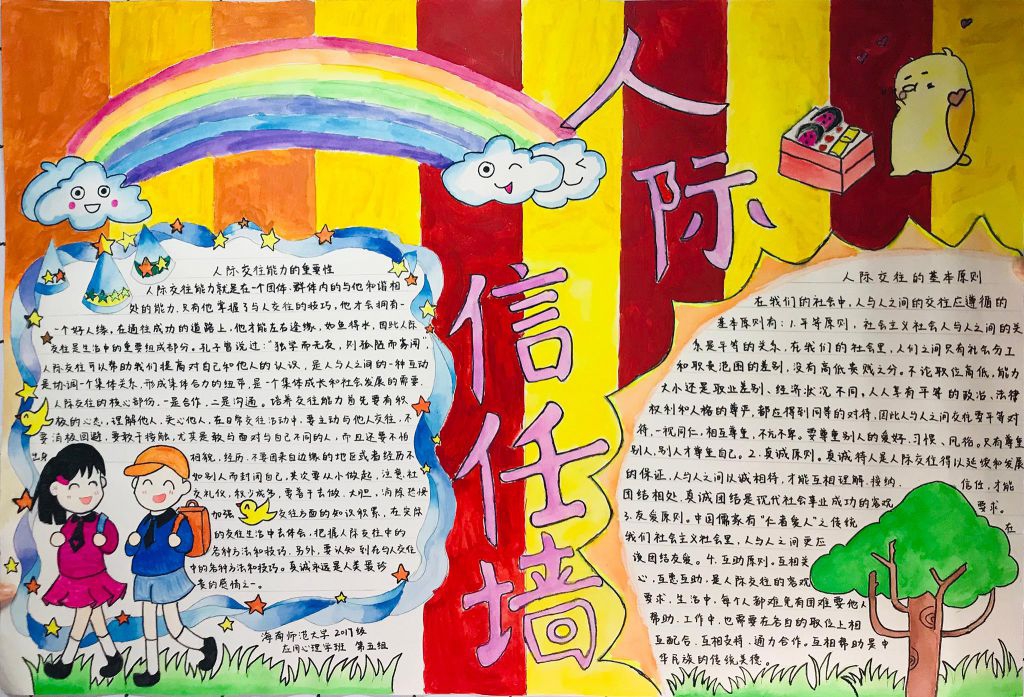 人际
信任墙
人际交往能力的重要性
人际交往能力就是在一个团体、群体内的与他和谐相
处的能力,只有他掌握了与人交往的技巧,他才会拥有
一个好人缘,在通往成功的道路上,他才能左右逢缘,如鱼得水,因此人际
交往是生活中的重要组成部分。孔子曾说过:“独学而无友,则孤陋而寡闻”
人际交往可以帮助我们提高对自己知他人的认识,是人与人之间的一种互动
是协调一个集体关系,形成集体合力的纽带,是一个集体成长和社会发展的需要,
人际交往的核心部份,一是合作,二是沟通。培养交往能力首先要有积
极的心态,理解他人,关心他人,在日常交往活动中,要主动与他人交往,不
要消极回避,要敢于接触,尤其是敢与面对与自己不同的人,而且还要不怕
出身、相貌、经历,不要因来自边缘的地区或者经历不
如别人而封闭自己,其次要从小做起,注意社
交礼仪,积少成多,要善于去做,大胆,消除恐惧
加强交往方面的知识积累,在实际
的交往生活中去体会,把握人际交往中的
各种方法和技巧。另外,要认知到在与人交往
中的各种方法和技巧。真诚永远是人类最珍
贵的感情之一。
海南师范大学2017级
应用心理学班 第五组
人际交往的基本原则
在我们的社会中,人与人之间的交往应遵循的
基本原则有:1.平等原则,社会主义社会人与人之间的关
系是平等的关系,在我们的社会里,人们之间只有社会分工
和职责范围的差别,没有高低贵贱之分。不论职位高低,能力
大小还是职业差别,经济状况不同,人人享有平等的政治,法律
权利和人格的尊严,都应得到同等的对待,因此人与人之间交往要平等对
待,一视同仁,相互尊重,不亢不卑。要尊重别人的爱好、习惯、风俗。只有尊重
别人,别人才尊重自己。2.真诚原则。真诚待人是人际交往得以延续和发展
的保证,人与人之间以诚相待,才能互相理解,接纳、信任,才能
团结相处,真诚团结是现代社会事业成功的客观要求。
3.友爱原则。中国儒家有“仁者爱人”之传统在
我们社会主义社会里,人与人之间更应
该团结友爱。4.互助原则。互相关
心,互惠互助,是人际交往的客观
要求,生活中,每个人都难免有困难要他人
帮助,工作中,也需要在各自的职位上相
互配合、互相支持、通力合作。互相帮助是中
华民族的传统美德。